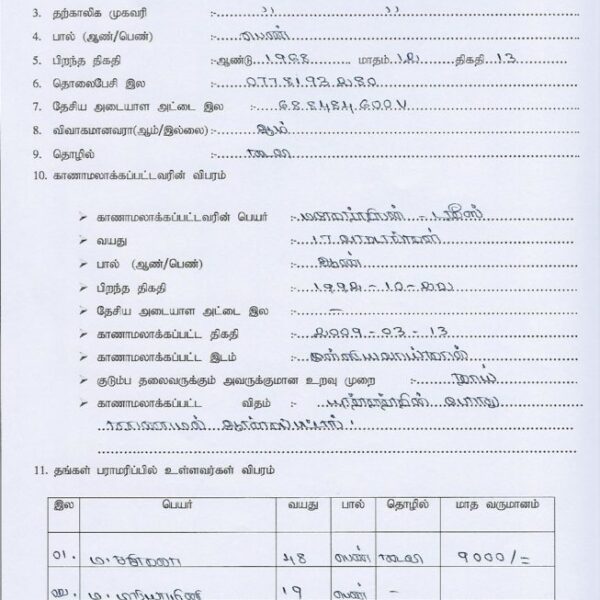 3. தற்காலிக முகவரி :- ,, ,,
4. பால் (ஆண்/பெண்) :- பெண்
5. பிறந்த திகதி :-ஆண்டு 1968 மாதம் 12 திகதி 13
6. தொலைபேசி இல :- 0778193280
7. தேசிய அடையாள அட்டை இல :- 688484600V
8. விவாகமானவரா(ஆம்/இல்லை) :- ஆம்
9. தொழில் :- கூலி
10. காணாமலாக்கப்பட்டவரின் விபரம்
➢ காணாமலாக்கப்பட்டவரின் பெயர் :-
➢ வயது :- 17
➢ பால் (ஆண்/பெண்) :- ஆண்
➢ பிறந்த திகதி :- 1992-10-22
➢ தேசிய அடையாள அட்டை இல :- –
➢ காணாமலாக்கப்பட்ட திகதி :- 2009-03-13
➢ காணாமலாக்கப்பட்ட இடம் :- முள்ளியவாய்க்கால்
➢ குடும்ப தலைவருக்கும் அவருக்குமான உறவு முறை :- தாய்
➢ காணாமலாக்கப்பட்ட விதம் :- யுத்தத்தின் போது
காணாமல்
11. தங்கள் பராமரிப்பில் உள்ளவர்கள் விபரம்
இல பெயர் வயது பால் தொழில் மாத வருமானம்
01. ம. 48 பெண் கூலி 9000/=
02. ம. 19 பெண் –